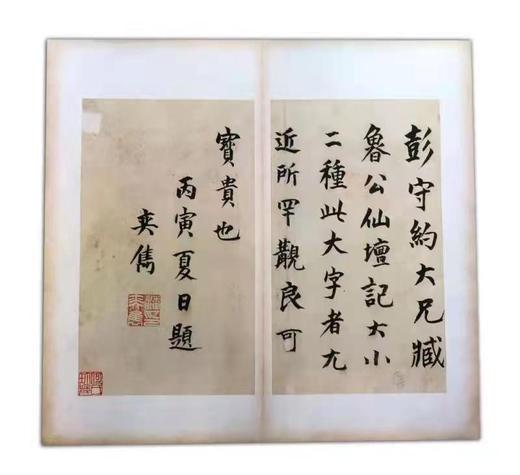 彭守約大兄臧
魯公仙壇記大小
二種此大字者尤
近所罕觀良可
寳貴也
丙寅夏日題
奕雋